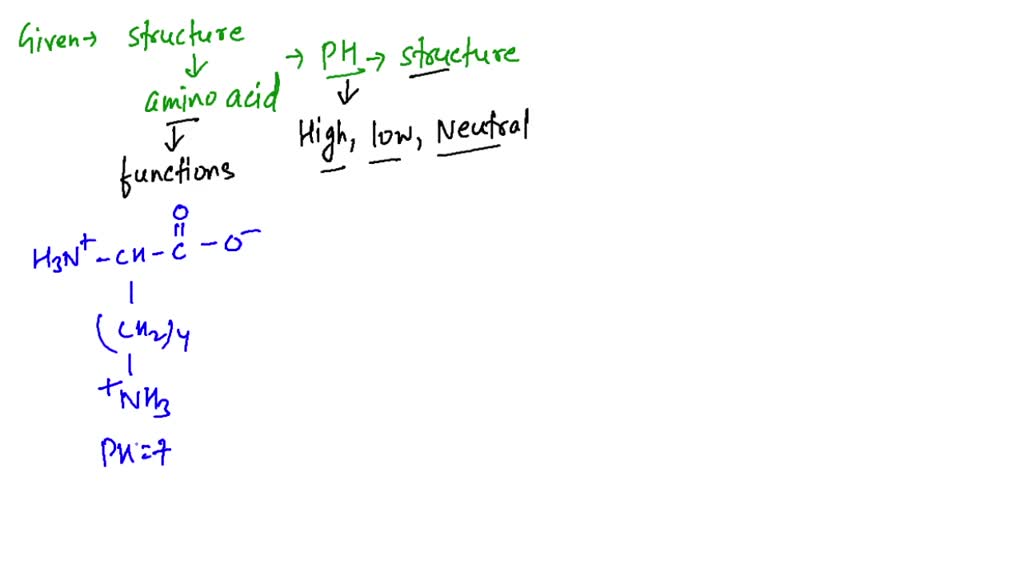 Given → structure → PH → structure
↓ ↓
amino acid High, low, Neutral
↓
functions
O
||
H3N+ - CH - C - O-
|
(CH2)4
|
+NH3
PH = 7